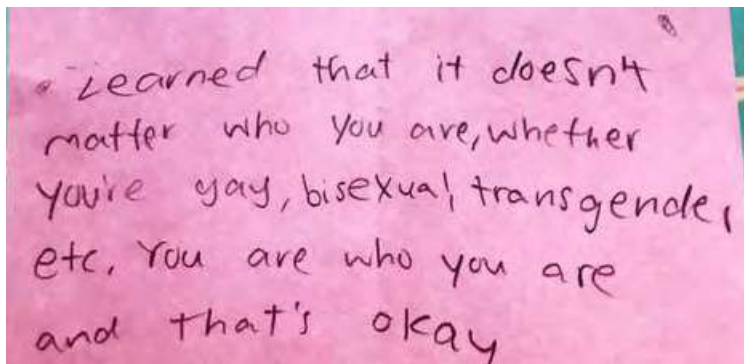 • Learned that it doesn't
matter who you are, whether
you're gay, bisexual, transgender,
etc. You are who you are
and that's okay